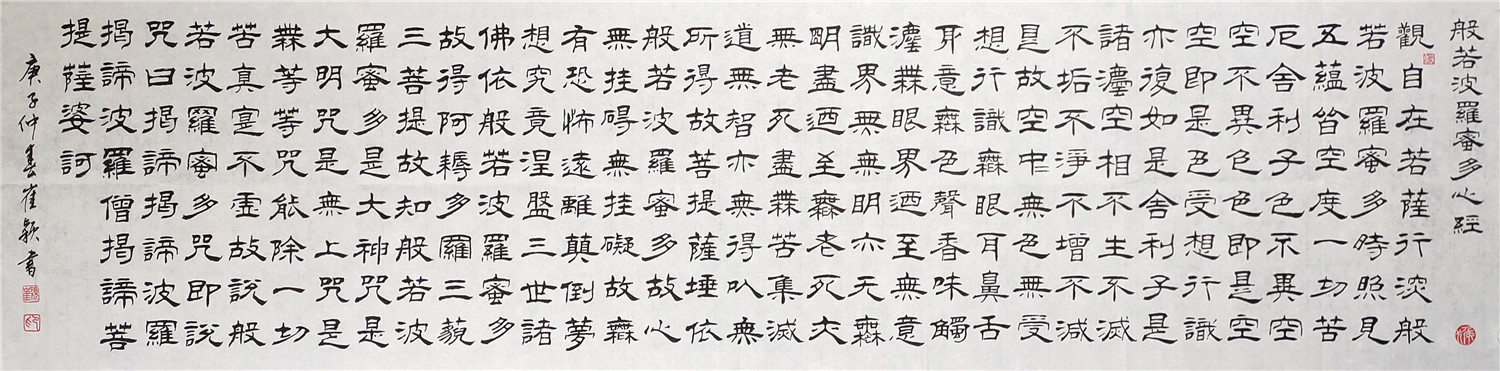 般若波羅蜜多心經
觀自在菩薩行深般
若波羅蜜多時照見
五蘊皆空度一切苦
厄舍利子色不異空
空不異色色即是空
空即是色受想行識
亦復如是舍利子是
諸灋空相不生不滅
不垢不淨不增不減
是故空中無色無受
想行識橆眼耳鼻舌
身意橆色聲香味觸
灋橆眼界迺至無意
識界無無明亦无橆
明盡迺至橆老死亦
無老死盡橆苦集滅
道無智亦無得以無
所得故菩提薩埵依
般若波羅蜜多故心
無挂碍無挂礙故橆
有恐怖遠離顛倒夢
想究竟涅盤三世諸
佛依般若波羅蜜多
故得阿耨多羅三藐
三菩提故知般若波
羅蜜多是大神咒是
大明咒是無上咒是
橆等等咒能除一切
苦真寔不虛故說般
若波羅蜜多咒即說
咒曰揭諦揭諦波羅
揭諦波羅僧揭諦菩
提薩婆訶
庚子仲春崔穎書